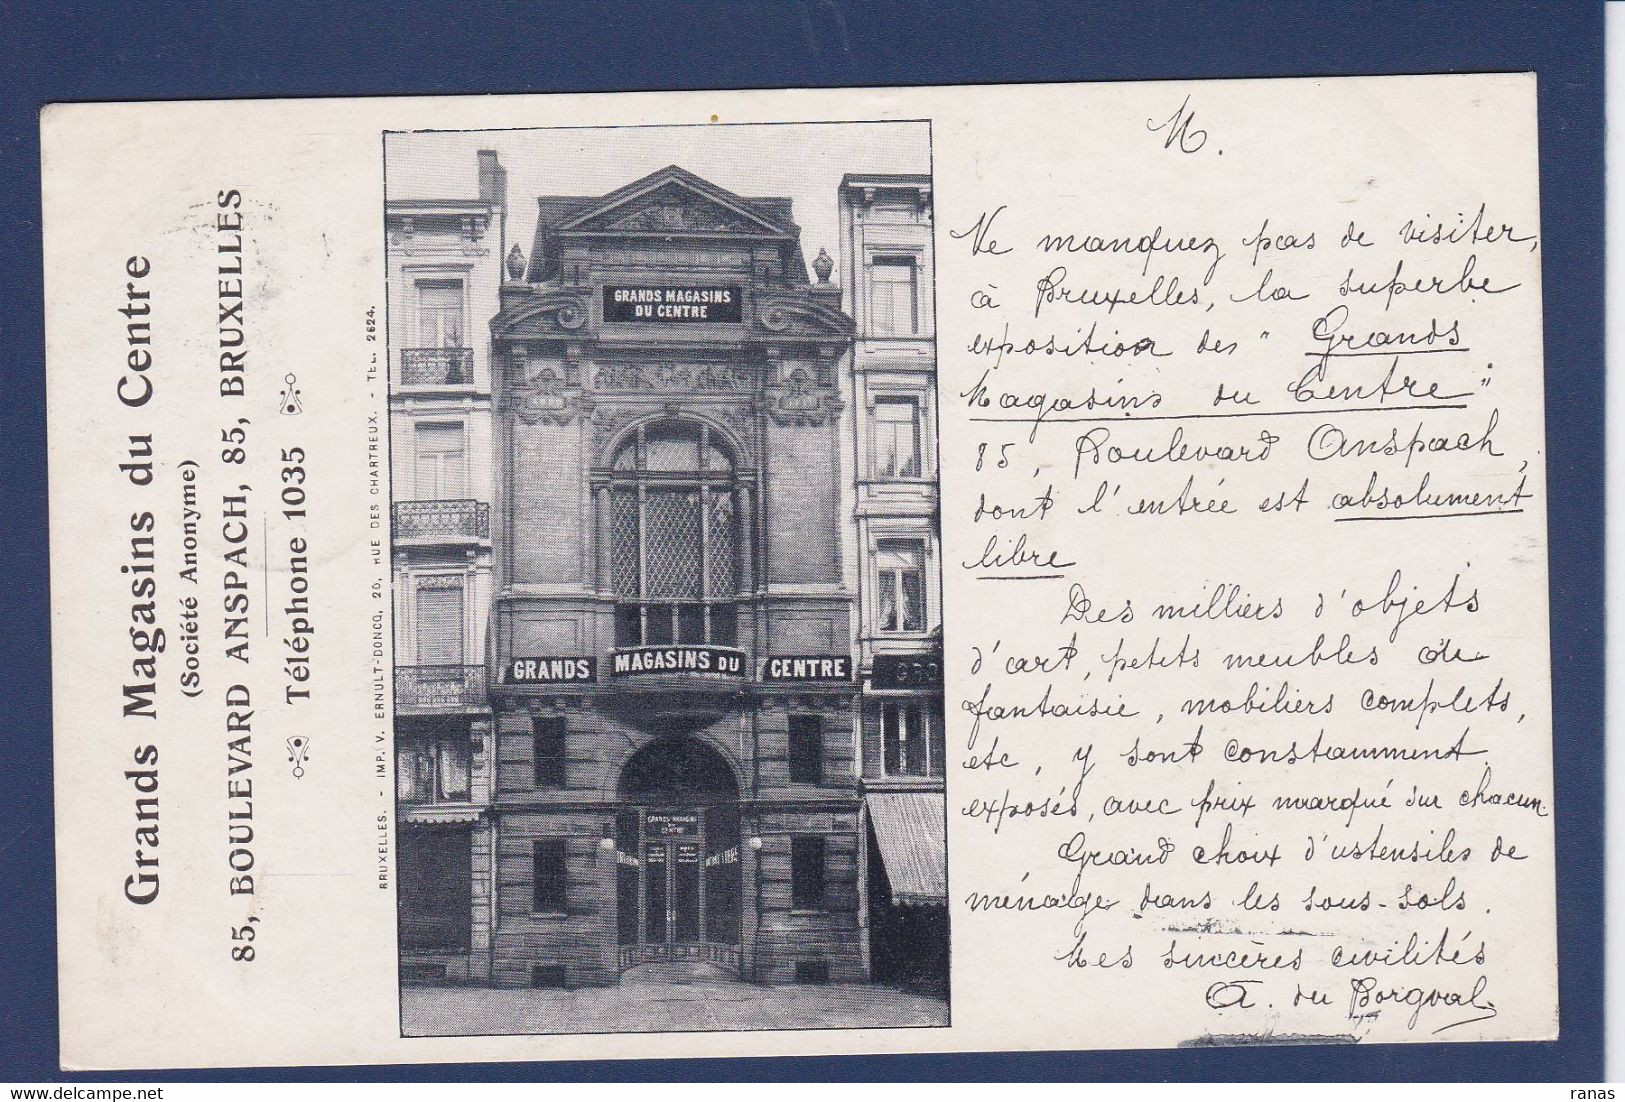 Grands Magasins du Centre
(Société Anonyme)
85, BOULEVARD ANSPACH, 85, BRUXELLES
Téléphone 1035
BRUXELLES. - IMP. V. ERNULT-DONCQ, 20, RUE DES CHARTREUX. - TÉL. 2624.
GRANDS MAGASINS
DU CENTRE
GRANDS MAGASINS DU CENTRE
GRANDS MAGASINS
DU
CENTRE
M.
Ne manquez pas de visiter,
à Bruxelles, la superbe
exposition des " Grands
Magasins du Centre "
85, Boulevard Anspach,
dont l'entrée est absolument
libre
Des milliers d'objets
d'art, petits meubles de
fantaisie, mobiliers complets,
etc, y sont constamment
exposés, avec prix marqué sur chacun.
Grand choix d'ustensiles de
ménage dans les sous-sols.
Mes sincères civilités
A. du Borgval
ranas